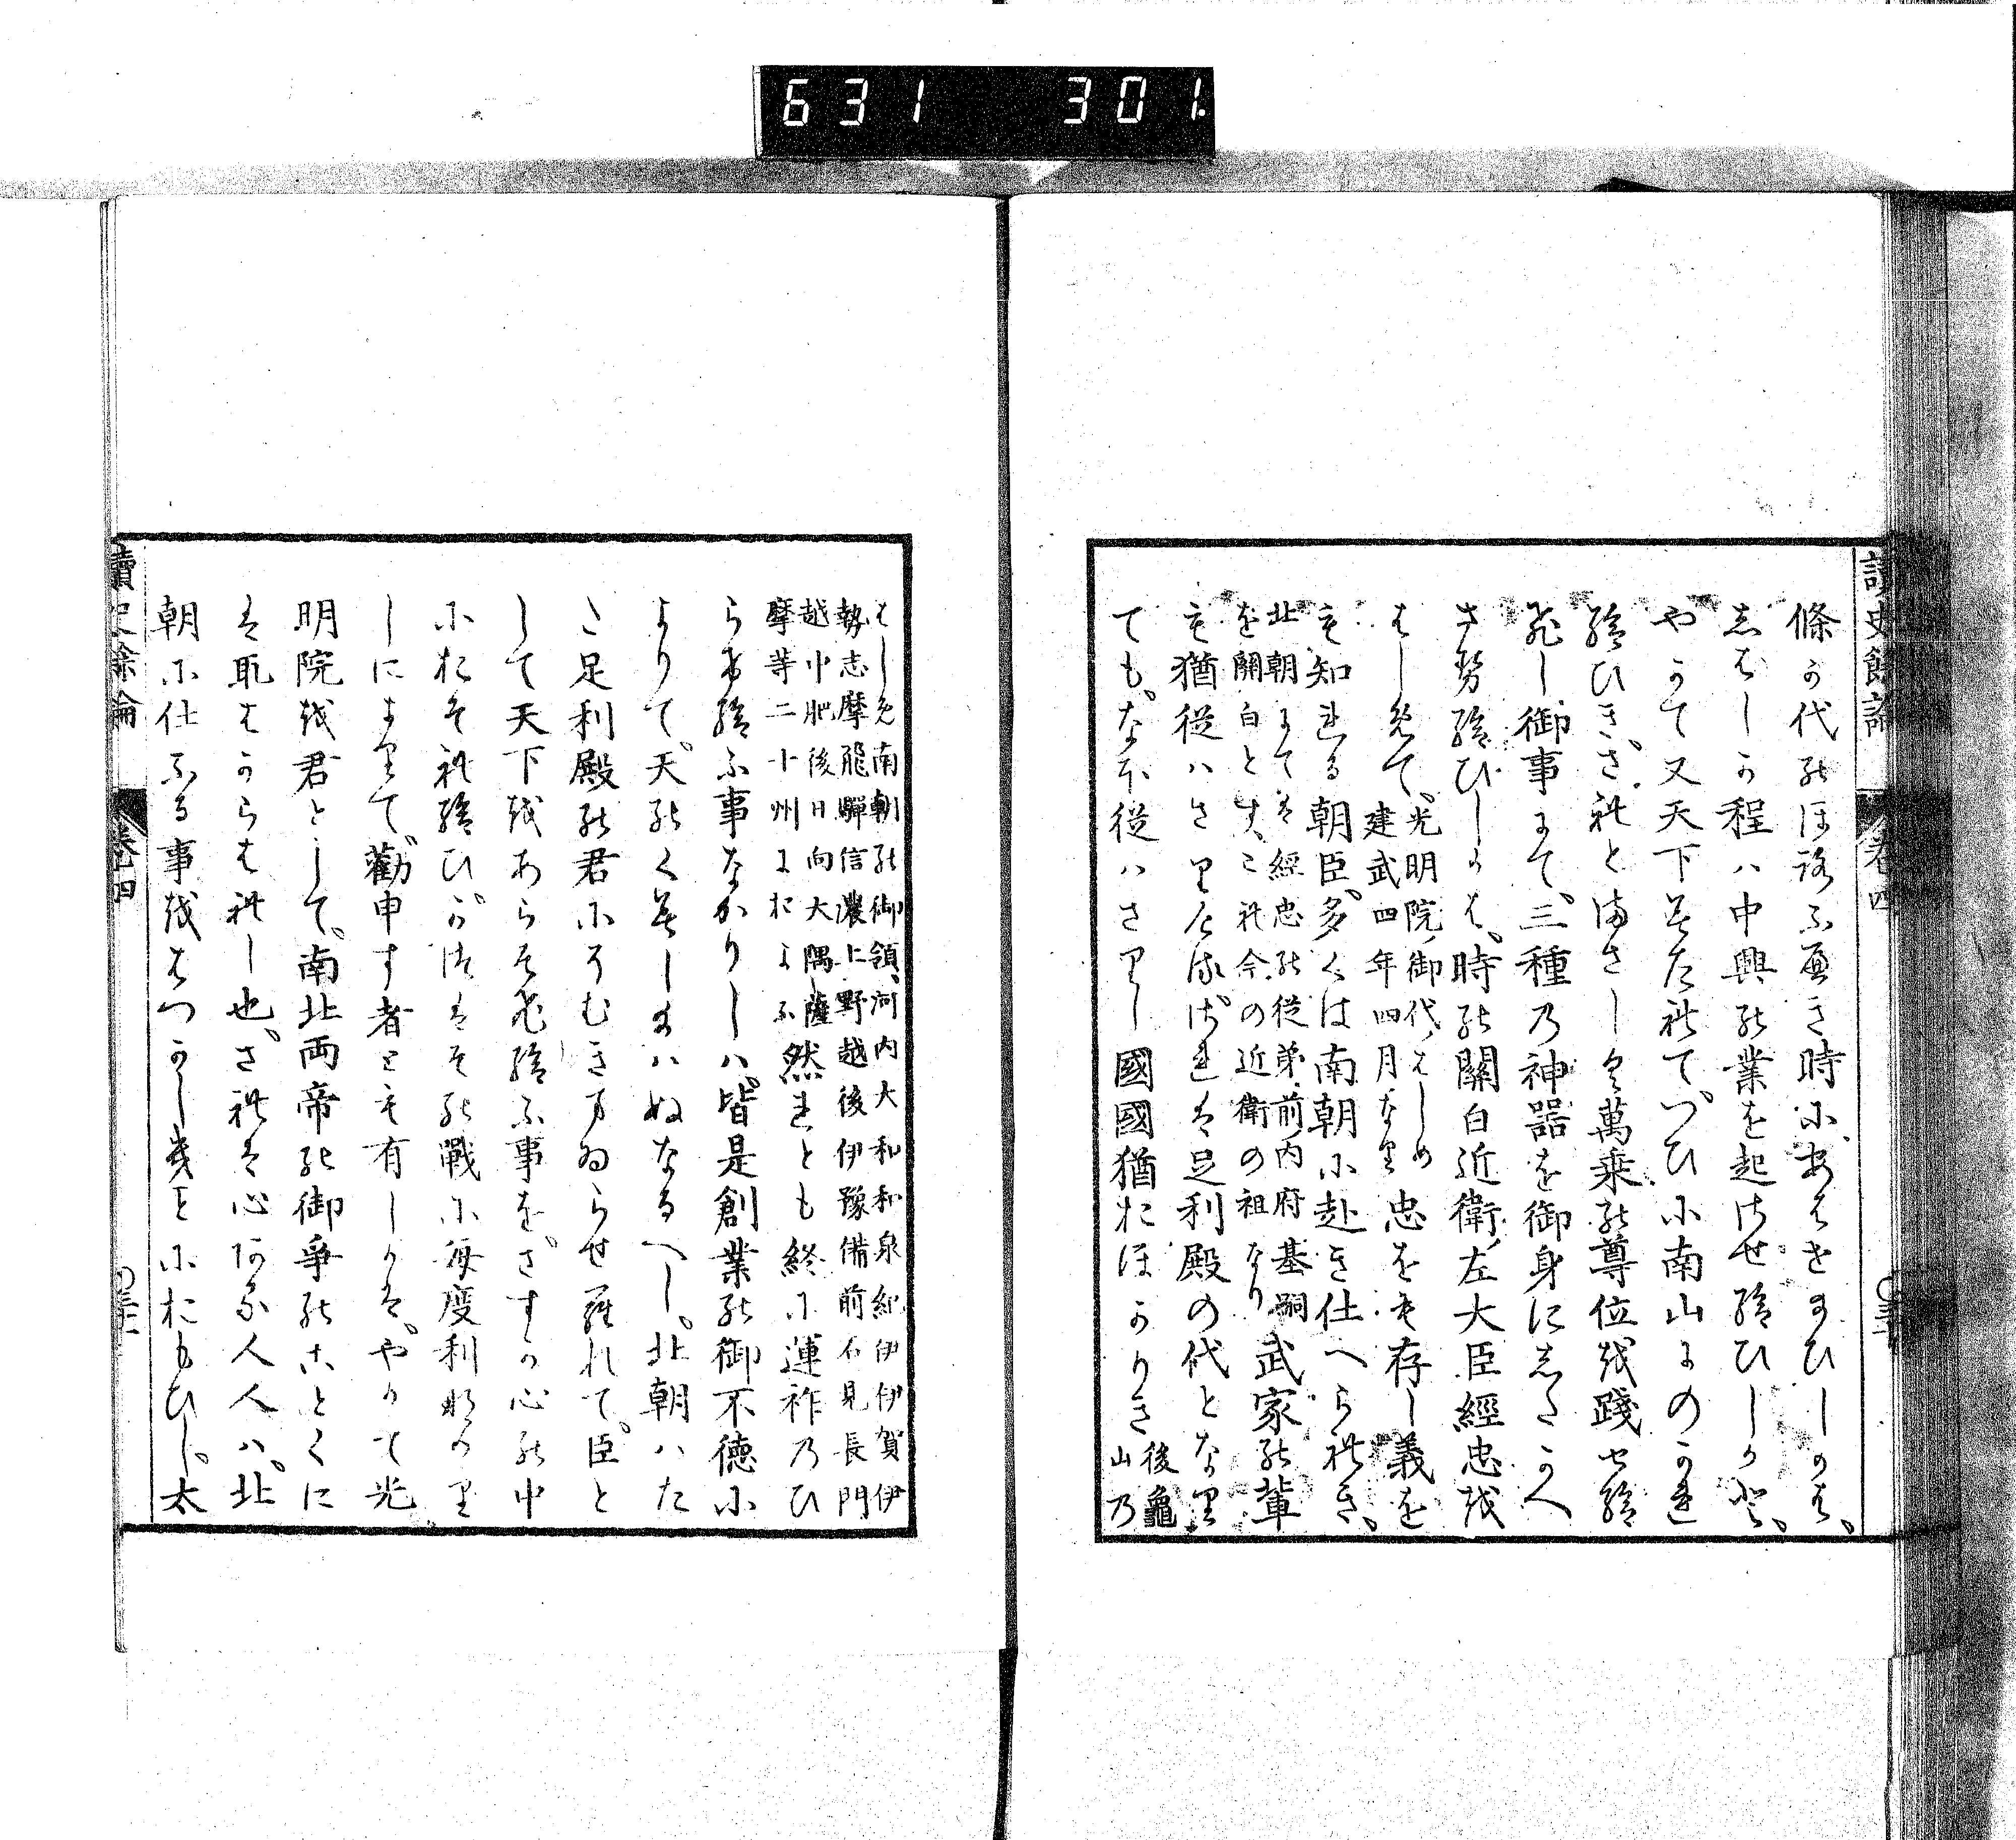 讀史餘論 卷四
條か代のほろふへき時にあはせ給ひしかは、
しはしか程ハ中興の業を起させ給ひしかと、
やかて又天下みたれて、つひに南山にのかれ
給ひき、されとまさしく萬乗の尊位を踐せ給
ひし御事にて、三種乃神器を御身にしたかへ
させ給ひしかは、時の關白近衛左大臣經忠を
はしめて、光明院御代はしめ
建武四年四月なり 忠をも存し義を
も知れる朝臣、多くは南朝に赴き仕へられき、
北朝にては經忠の從弟前内府基嗣
を關白とすこれ今の近衛の祖なり 武家の輩
も猶從ハさり されは足利殿の代となり
ても、なほ從ハさりし國國猶おほかりき 後龜
山乃
はしめ南朝の御領、河内大和和泉紀伊伊賀伊
勢志摩飛驒信濃上野越後伊豫備前石見長門
越中肥後日向大隅薩
摩等二十州におよふ 然れとも終に運祚乃ひ
らけ給ふ事なかりしハ、皆是創業の御不徳に
よりて、天のくみしまハぬなるへし、北朝ハた
ゝ足利殿の君にそむきまゐらせられて、臣と
して天下をあらそひ給ふ事を、さすか心の中
におそれ給ひ、かつはその戰に毎度利なかり
しによりて、勸申す者とも有しかは、やかて光
明院を君として、南北両帝の御爭のことくに
は取はからはれし也、されは心ある人人ハ、北
朝に仕ふる事をはつかしきことにおもひし、太
讀史餘論 卷四
631 301